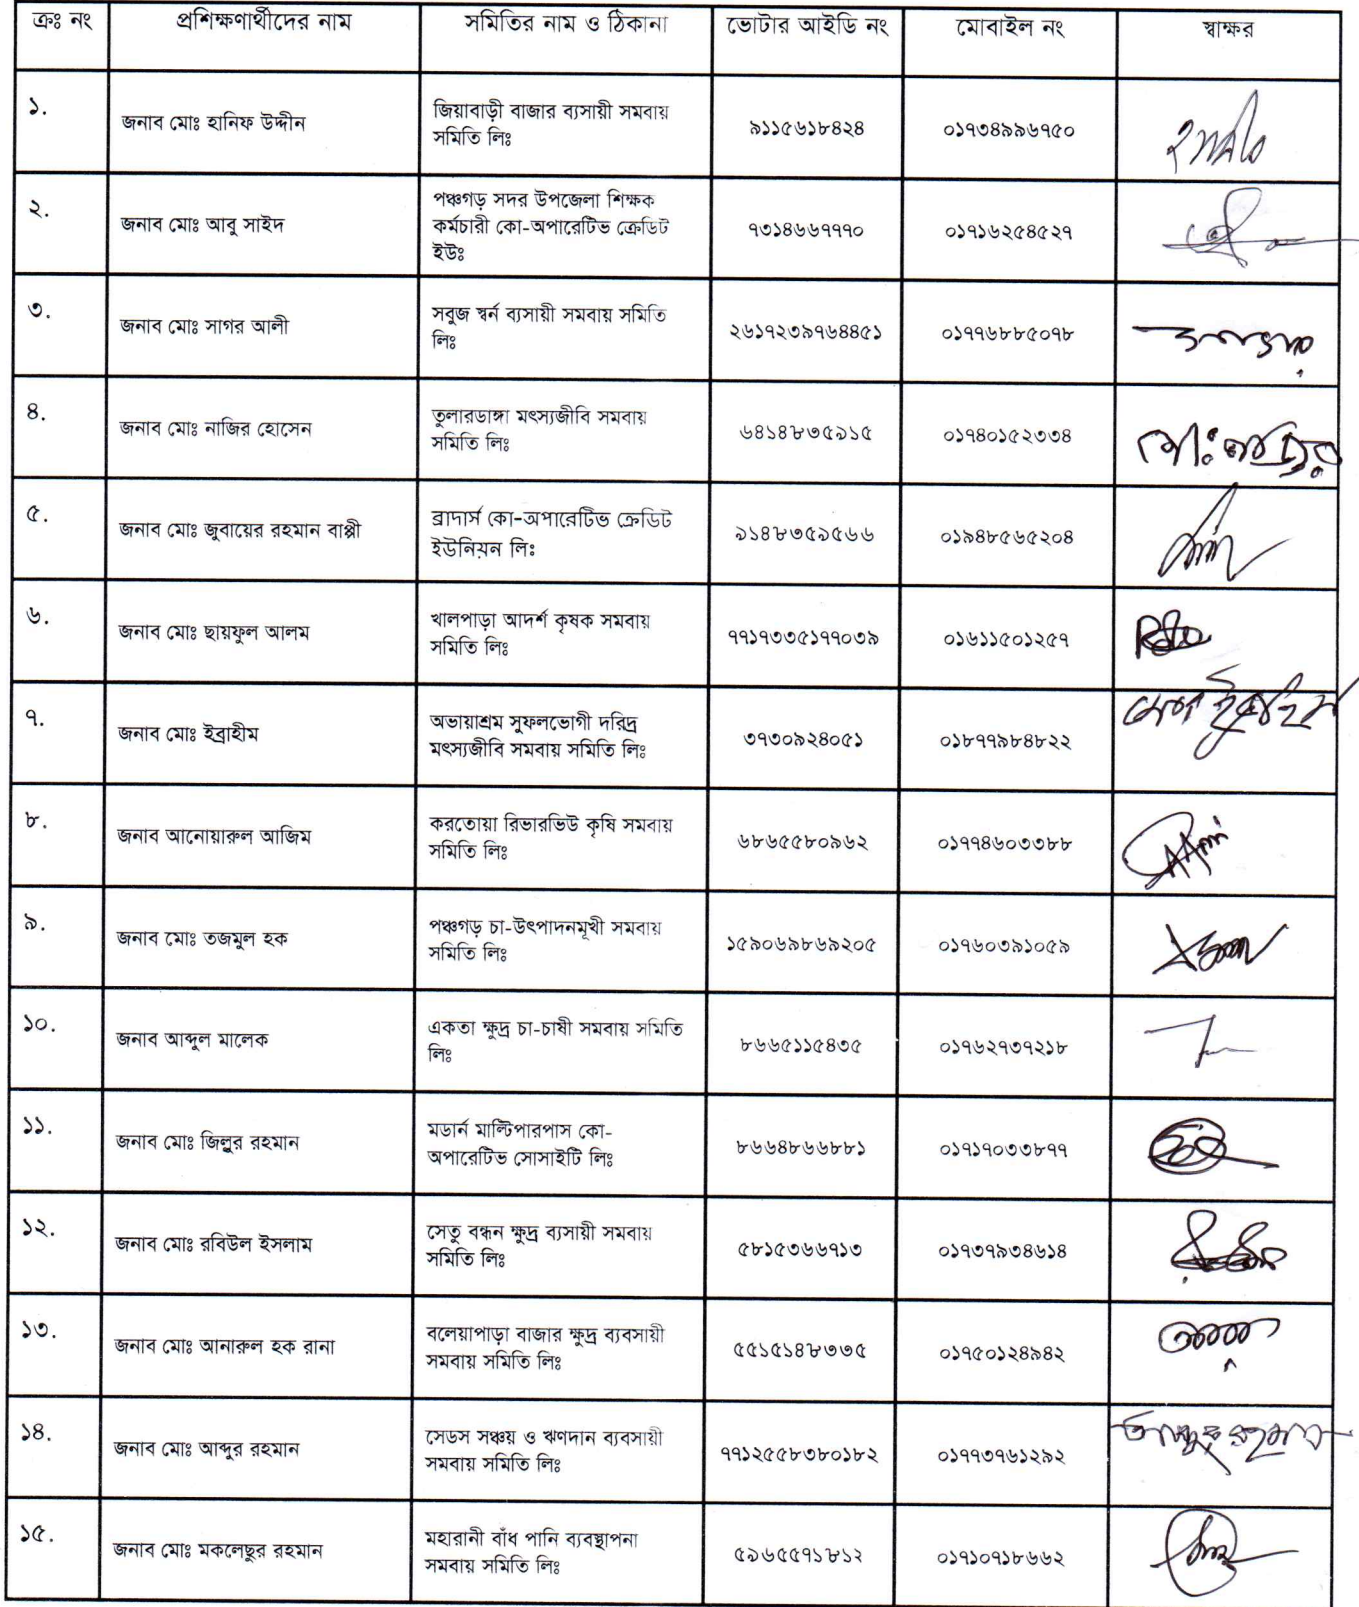 ক্রঃ নং প্রশিক্ষণার্থীদের নাম সমিতির নাম ও ঠিকানা ভোটার আইডি নং মোবাইল নং স্বাক্ষর
১. জনাব মোঃ হানিফ উদ্দীন জিয়াবাড়ী বাজার ব্যসায়ী সমবায়
সমিতি লিঃ ৯১১৫৬১৮৪২৪ ০১৭৩৪৯৯৬৭৫০
২. জনাব মোঃ আবু সাইদ পঞ্চগড় সদর উপজেলা শিক্ষক
কর্মচারী কো-অপারেটিভ ক্রেডিট
ইউঃ ৭৩১৪৬৬৭৭৭০ ০১৭১৬২৫৪৫২৭
৩. জনাব মোঃ সাগর আলী সবুজ স্বর্ন ব্যসায়ী সমবায় সমিতি
লিঃ ২৬১৭২৩৯৭৬৪৪৫১ ০১৭৭৬৮৮৫০৭৮
৪. জনাব মোঃ নাজির হোসেন তুলারডাঙ্গা মৎস্যজীবি সমবায়
সমিতি লিঃ ৬৪১৪৮৩৫৯১৫ ০১৭৪০১৫২৩৩৪
৫. জনাব মোঃ জুবায়ের রহমান বাপ্পী ব্রাদার্স কো-অপারেটিভ ক্রেডিট
ইউনিয়ন লিঃ ৯১৪৮৩৫৯৫৬৬ ০১৯৪৮৫৬৫২০৪
৬. জনাব মোঃ ছায়ফুল আলম খালপাড়া আদর্শ কৃষক সমবায়
সমিতি লিঃ ৭৭১৭৩৩৫১৭৭০৩৯ ০১৬১১৫০১২৫৭
৭. জনাব মোঃ ইব্রাহীম অভায়াশ্রম সুফলভোগী দরিদ্র
মৎস্যজীবি সমবায় সমিতি লিঃ ৩৭৩০৯২৪০৫১ ০১৮৭৭৯৮৪৮২২
৮. জনাব আনোয়ারুল আজিম করতোয়া রিভারভিউ কৃষি সমবায়
সমিতি লিঃ ৬৮৬৫৫৮০৯৬২ ০১৭৭৪৬০৩৩৮৮
৯. জনাব মোঃ তজমুল হক পঞ্চগড় চা-উৎপাদনমূখী সমবায়
সমিতি লিঃ ১৫৯০৬৯৮৬৯২০৫ ০১৭৬০৩৯১০৫৯
১০. জনাব আব্দুল মালেক একতা ক্ষুদ্র চা-চাষী সমবায় সমিতি
লিঃ ৮৬৬৫১১৫৪৩৫ ০১৭৬২৭৩৭২১৮
১১. জনাব মোঃ জিল্লুর রহমান মডার্ন মাল্টিপারপাস কো-
অপারেটিভ সোসাইটি লিঃ ৮৬৬৪৮৬৬৮৮১ ০১৭১৭০৩৩৮৭৭
১২. জনাব মোঃ রবিউল ইসলাম সেতু বন্ধন ক্ষুদ্র ব্যসায়ী সমবায়
সমিতি লিঃ ৫৮১৫৩৬৬৭১৩ ০১৭৩৭৯৩৪৬১৪
১৩. জনাব মোঃ আনারুল হক রানা বলেয়াপাড়া বাজার ক্ষুদ্র ব্যবসায়ী
সমবায় সমিতি লিঃ ৫৫১৫১৪৮৩৩৫ ০১৭৫০১২৪৯৪২
১৪. জনাব মোঃ আব্দুর রহমান সেডস সঞ্চয় ও ঋণদান ব্যবসায়ী
সমবায় সমিতি লিঃ ৭৭১২৫৫৮৩৮০১৮২ ০১৭৭৩৭৬১২৯২
১৫. জনাব মোঃ মকলেছুর রহমান মহারানী বাঁধ পানি ব্যবস্থাপনা
সমবায় সমিতি লিঃ ৫৯৬৫৫৭১৮১২ ০১৭১০৭১৮৬৬২